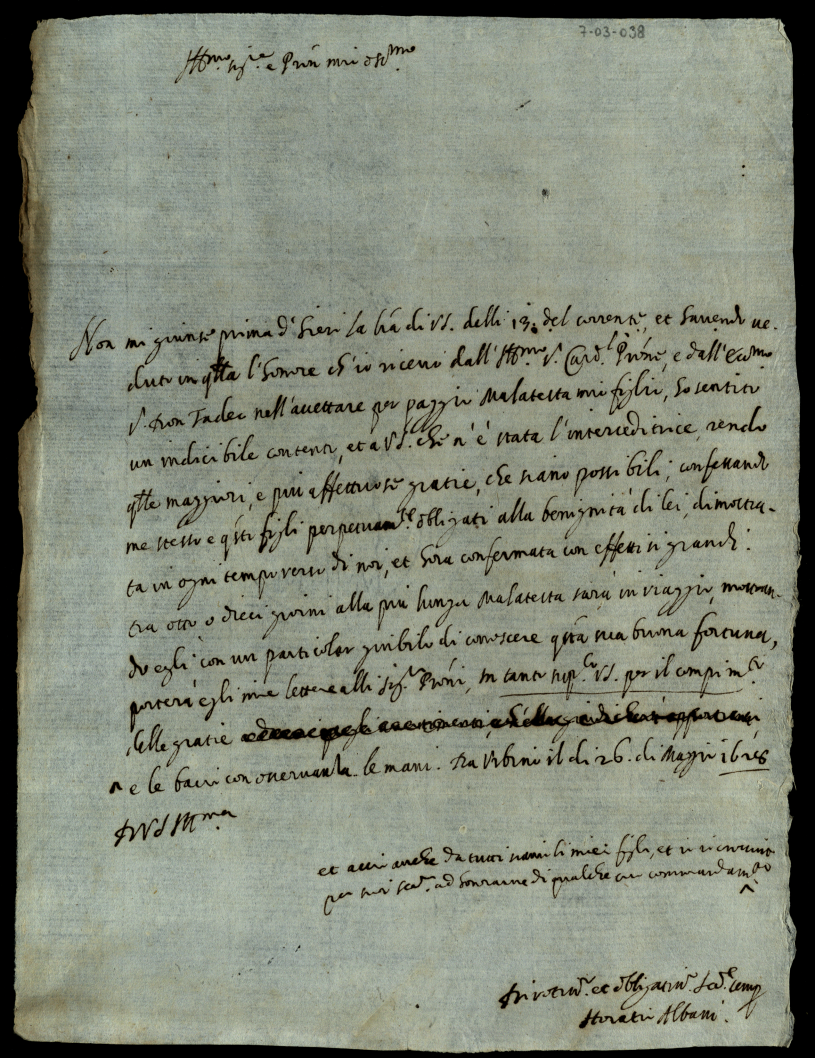 7-03-038
Ill.mo sig.re e Pron mio oss.mo
Non mi giunse prima d'hieri la lra di VS. delli 13. del corrente, et havendo ve-
duto in qlla l'honore ch'io ricevo dall'Ill.mo S. Card.l Prone, e dall'Ecc.mo
S. Don Tadeo nell'accettare per paggio Malatesta mio figlio, ho sentito
un indicibile contento, et a VS. che n'è stata l'interceditrice, rendo
qlle maggiori, e più affettuose gratie, che siano possibili, confessando
me stesso e qsti figli perpetuam.te obligati alla benignità di lei, dimostra-
ta in ogni tempo verso di noi, et hora confermata con effetti sì grandi.
tra otto o dieci giorni alla più lunga Malatesta sarà in viaggio, mostran-
do egli con un particolar giubilo di conoscere qsta sua buona fortuna,
porterà egli mie lettere alli sig.ri Proni, in tanto sup.co VS. per il compim.to
delle gratie
^ e le bacio con osservanza le mani. Da Urbino il dì 26. di Maggio 1628
Di VS Ill.ma
et accio anche da tutti siano li miei figli, et
per suoi ad honrarne di qualche suo commandam.to
^
Divotiss.o et obligatiss.o Se.re semp
Horatio Albani